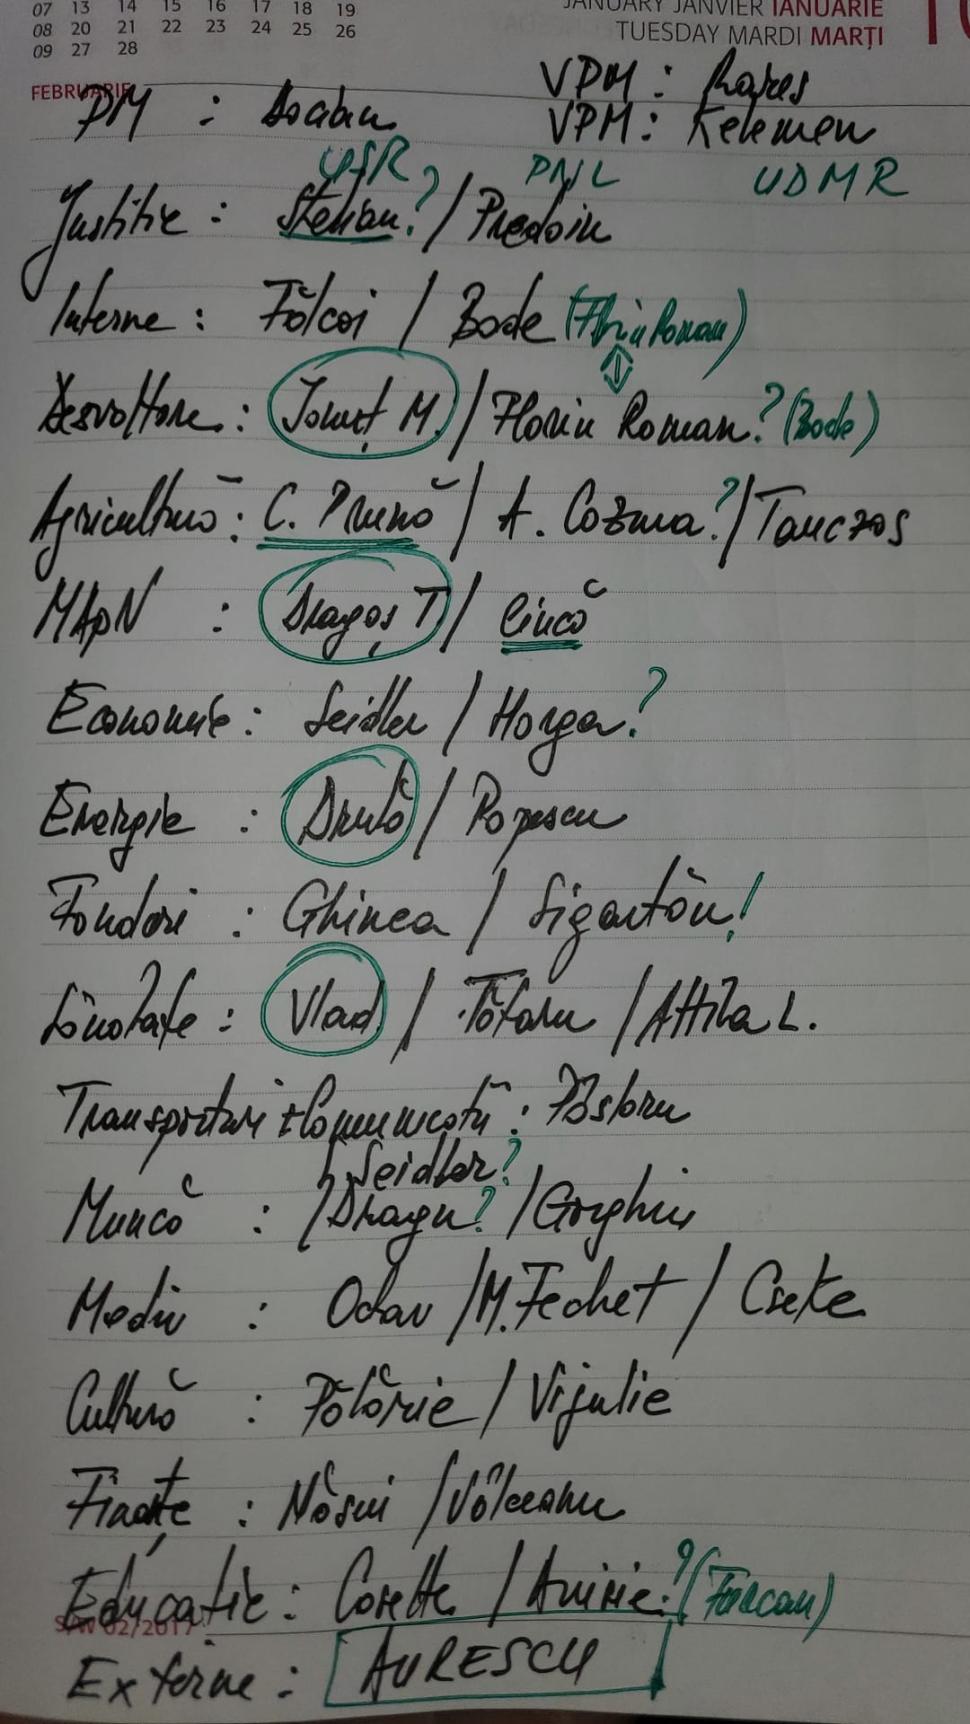 07 13 14 15 16 17 18 19
08 20 21 22 23 24 25 26
09 27 28
JANUARY JANVIER IANUARIE
TUESDAY MARDI MARȚI
FEBRUARIE
PM : VPM : Rareș
VPM : Kelemen
USR PNL UDMR
Justiție : Stelian? / Predoiu
Interne : Fălcoi / Bode (Florin Roman)
Dezvoltare : Ionuț M. / Florin Roman? (Bode)
Agricultură : C. Prună / A. Cozma? / Tanczos
MApN : Dragoș T / Cîucă
Economie : Seidler / Horga?
Energie : Drulă / Popescu
Fonduri : Ghinea / Sigartău!
Sănătate : Vlad / Tătaru / Attila L.
Transporturi + Comunicații : Păslaru
Seidler?
Muncă : / Dragu? / Gorghiu
Mediu : Odan / M. Fechet / Cseke
Cultură : Pălărie / Vijulie
Finațe : Năsui / Vâlceanu
Educație : Cosette / Anisie? (Turcan)
02/2017
Externe : AURESCU